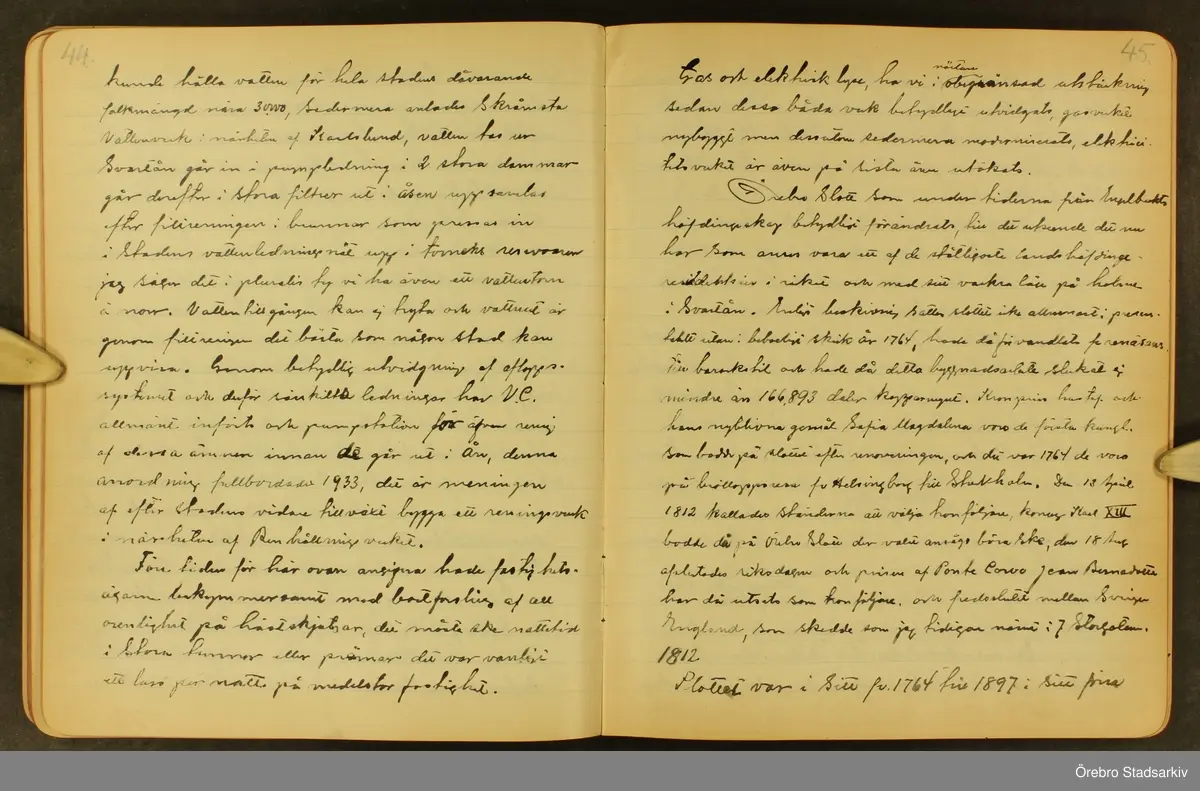 44.
kunde hålla vatten för hela stadens dåvarande
folkmängd nära 30000, Sedermera anlades Skråmsta
Vattenverk i närheten af Karlslund, vatten tas ur
Svartån går in i pumpledning i 2 stora dammar
går derefter i stora filtrer ut i åsen uppsamlas
efter filtreringen i brunnar som pressas in
i Stadens vattenledningsnät upp i tornets reservoarer
jag säger det i pluralis ty vi ha även ett vattentorn
å norr. Vattentillgången kan ej tryta och vattnet är
genom filtreringen det bästa som någon stad kan
uppvisa. Genom betydlig utvidgning af aflopps-
systemet och derför särskillda ledningar har V.C.
allmänt införts och pumpstation för äfven rening
af dessa ämnen innan de går ut i Ån, denna
anordning fullbordades 1933, det är meningen
af efter Stadens vidare tillväxt bygga ett reningsverk
i närheten af Renhållningsverket.
Före tiden för här ovan angifna hade fastighets-
ägarne bekymmersamt med bortforsling af all
orenlighet på hästskjutsar, det måste ske nattetid
i Stora tunnor eller pråmar det var vanligt
ett lass per natt på medelstor fastighet.
45.
Gas och elektrisk lyse, ha vi i nästan obegränsad utsträckning
sedan dessa båda verk betydligt utvidgats, gasverket
nybyggt men dessutom sedermera moderniserats, elektrici-
tetsverket är även på sista åren utökats.
Örebro Slott som under tiderna från Engelbrekts
höfdingeskap betydligt förändrats, till det utseende det nu
har som anses vara ett af de ståtligaste landshöfdinge-
residentsen i riket och med sitt vackra läge på holme
i Svartån. Enligt beskrivning sattes slottet ike allenast i
utan i beboeligt skick år 1764, hade då förvandlats fr renässans
till barockstil och hade då detta byggnadsarbete slukat ej
mindre än 166,893 daler kopparmynt. Kronprins Gustaf och
hans nyblivna gemål Sofia Magdalena voro de första kungl.
som bodde på slottet efter renoveringen, och det var 1764 de voro
på bröllopsresa fr Helsingborg till Stockholm. Den 13 April
1812 kallades Ständerna att välja tronföljare, konung Karl XIII
bodde då på Örebro Slott der valet ansågs böra ske, den 18 Aug
afslutades riksdagen och prinsen af Ponte Corvo Jean Bernadotte
har då utsets som tronföljare. och fredsslutet mellan Sverige
England, som skedde som jag tidigare nämt i 7 Storgatan.
1812
Slottet var i Sitt fr. 1764 till 1897 i sitt förra
Örebro Stadsarkiv